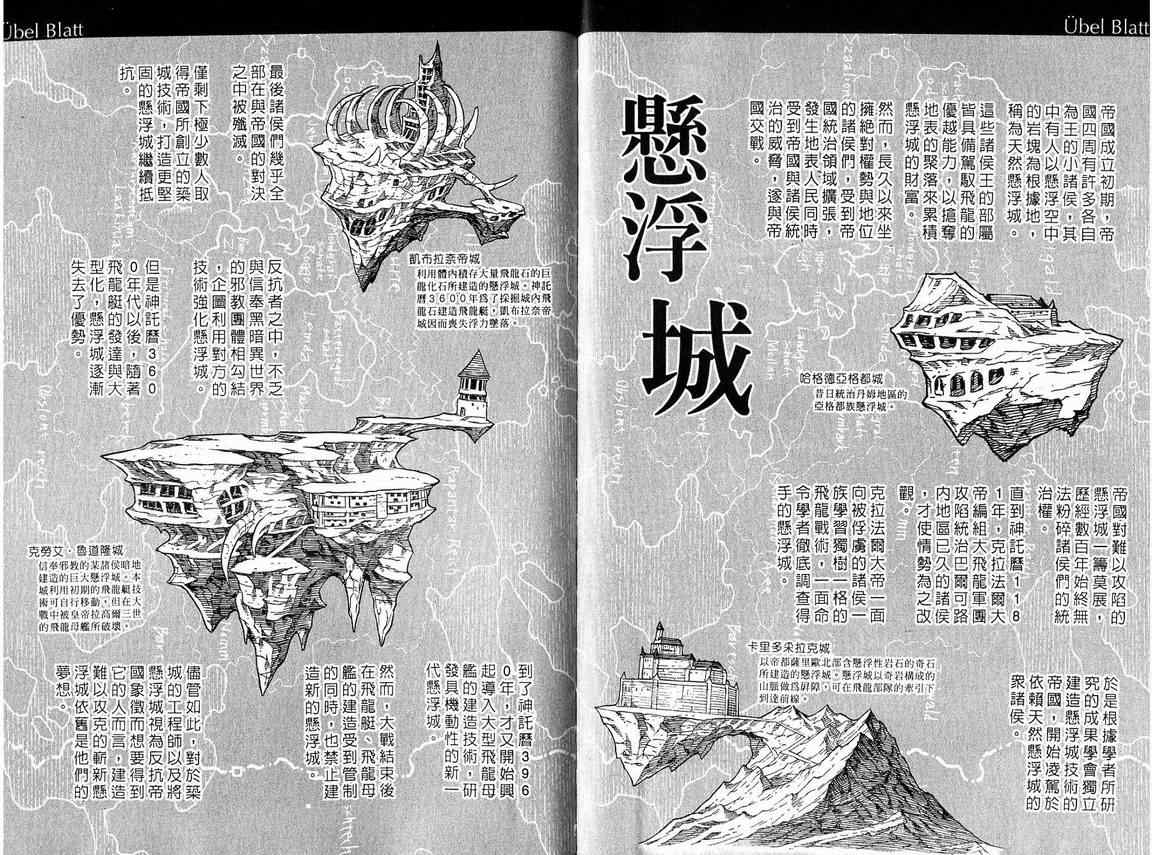 Übel Blatt
Übel Blatt
懸浮城
帝國成立初期，帝
國四周有許多各自
為王的小諸侯，其
中有人以懸浮空中
的岩塊為根據地，
稱為天然懸浮城。
這些諸侯王的部屬
皆具備駕馭飛龍的
優越能力，以搶奪
地表的聚落來累積
懸浮城的財富。
然而，長久以來坐
擁絕對權勢與地位
的諸侯們，受到帝
國統治領域擴張，
發生地表人民同時
受到帝國與諸侯統
治的威脅，遂與帝
國交戰。
哈格德亞格都城
昔日統治丹姆地區的
亞格都族懸浮城。
帝國對難以攻陷的
懸浮城一籌莫展，
歷經數百年始終無
法粉碎諸侯們的統
治權。
直到神託曆118
1年，克拉法爾大
帝編組大飛龍軍團
攻陷統治巴爾可路
內地區已久的諸侯
，才使情勢為之改
觀。
克拉法爾大帝一面
向被俘虜的諸侯一
族學習獨樹一格的
飛龍戰術，一面命
令學者徹底調查得
手的懸浮城。
卡里多采拉克城
以帝都薩里歐北部含懸浮性岩石的奇石
所建造的懸浮城。懸浮城以奇岩構成的
山脈做為屏障，可在飛龍部隊的牽引下
到達前線。
於是根據學者所研
究的成果學會獨立
建造懸浮城技術的
帝國，開始凌駕於
依賴天然懸浮城的
眾諸侯。
最後諸侯們幾乎全
部在與帝國的對決
之中被殲滅。
僅剩下極少數人取
得帝國所創立的築
城技術，打造更堅
固的懸浮城繼續抵
抗。
凱布拉奈帝城
利用體內積存大量飛龍石的巨
龍化石所建造的懸浮城。神託
曆3600年為了採掘城內飛
龍石建造飛龍艇，凱布拉奈帝
城因而喪失浮力墜落。
反抗者之中，不乏
與信奉黑暗異世界
的邪教團體相勾結
，企圖利用對方的
技術強化懸浮城。
但是神託曆360
0年代以後，隨著
飛龍艇的發達與大
型化，懸浮城逐漸
失去了優勢。
克勞艾·魯道隆城
信奉邪教的某諸侯暗地
建造的巨大懸浮城。本
城利用初期的飛龍艇技
術可自行移動，但在大
戰中被皇帝拉高爾三世
的飛龍母艦所破壞。
到了神託曆396
0年，才又開始興
起導入大型飛龍母
艦的建造技術，研
發具機動性的新一
代懸浮城。
然而，大戰結束後
在飛龍艇、飛龍母
艦的建造受到管制
的同時，也禁止建
造新的懸浮城。
儘管如此，對於築
城的工程師以及將
懸浮城視為反抗帝
國象徵而想要得到
它的人而言，建造
難以攻克的嶄新懸
浮城依舊是他們的
夢想。